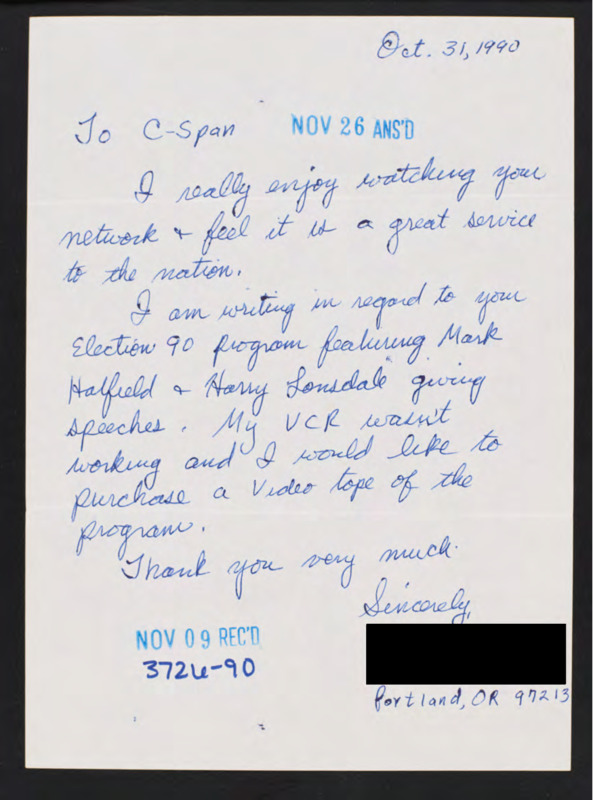 Oct. 31, 1990
To C-Span
NOV 26 ANS'D
I really enjoy watching your
network & feel it is a great service
to the nation.
I am writing in regard to your
Election 90 program featuring Mark
Hatfield & Harry Lonsdale giving
speeches. My VCR wasn't
working and I would like to
purchase a Video tape of the
program.
Thank you very much.
Sincerely,
NOV 09 REC'D
3726-90
Portland, OR 97213